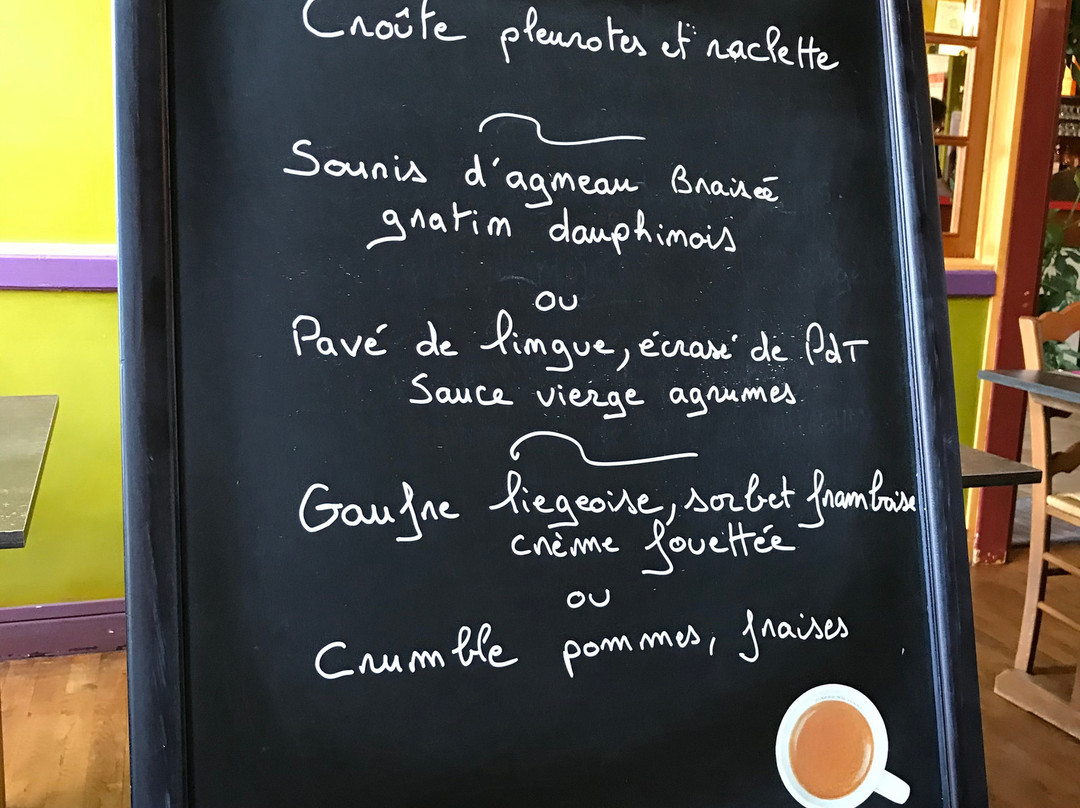 Croûte pleurotes et raclette
Souris d'agneau Braisée
gratin dauphinois
ou
Pavé de lingue, écrasé de PdT
Sauce vierge agrumes
Gaufre liegeoise, sorbet framboise
crème fouettée
ou
Crumble pommes, fraises